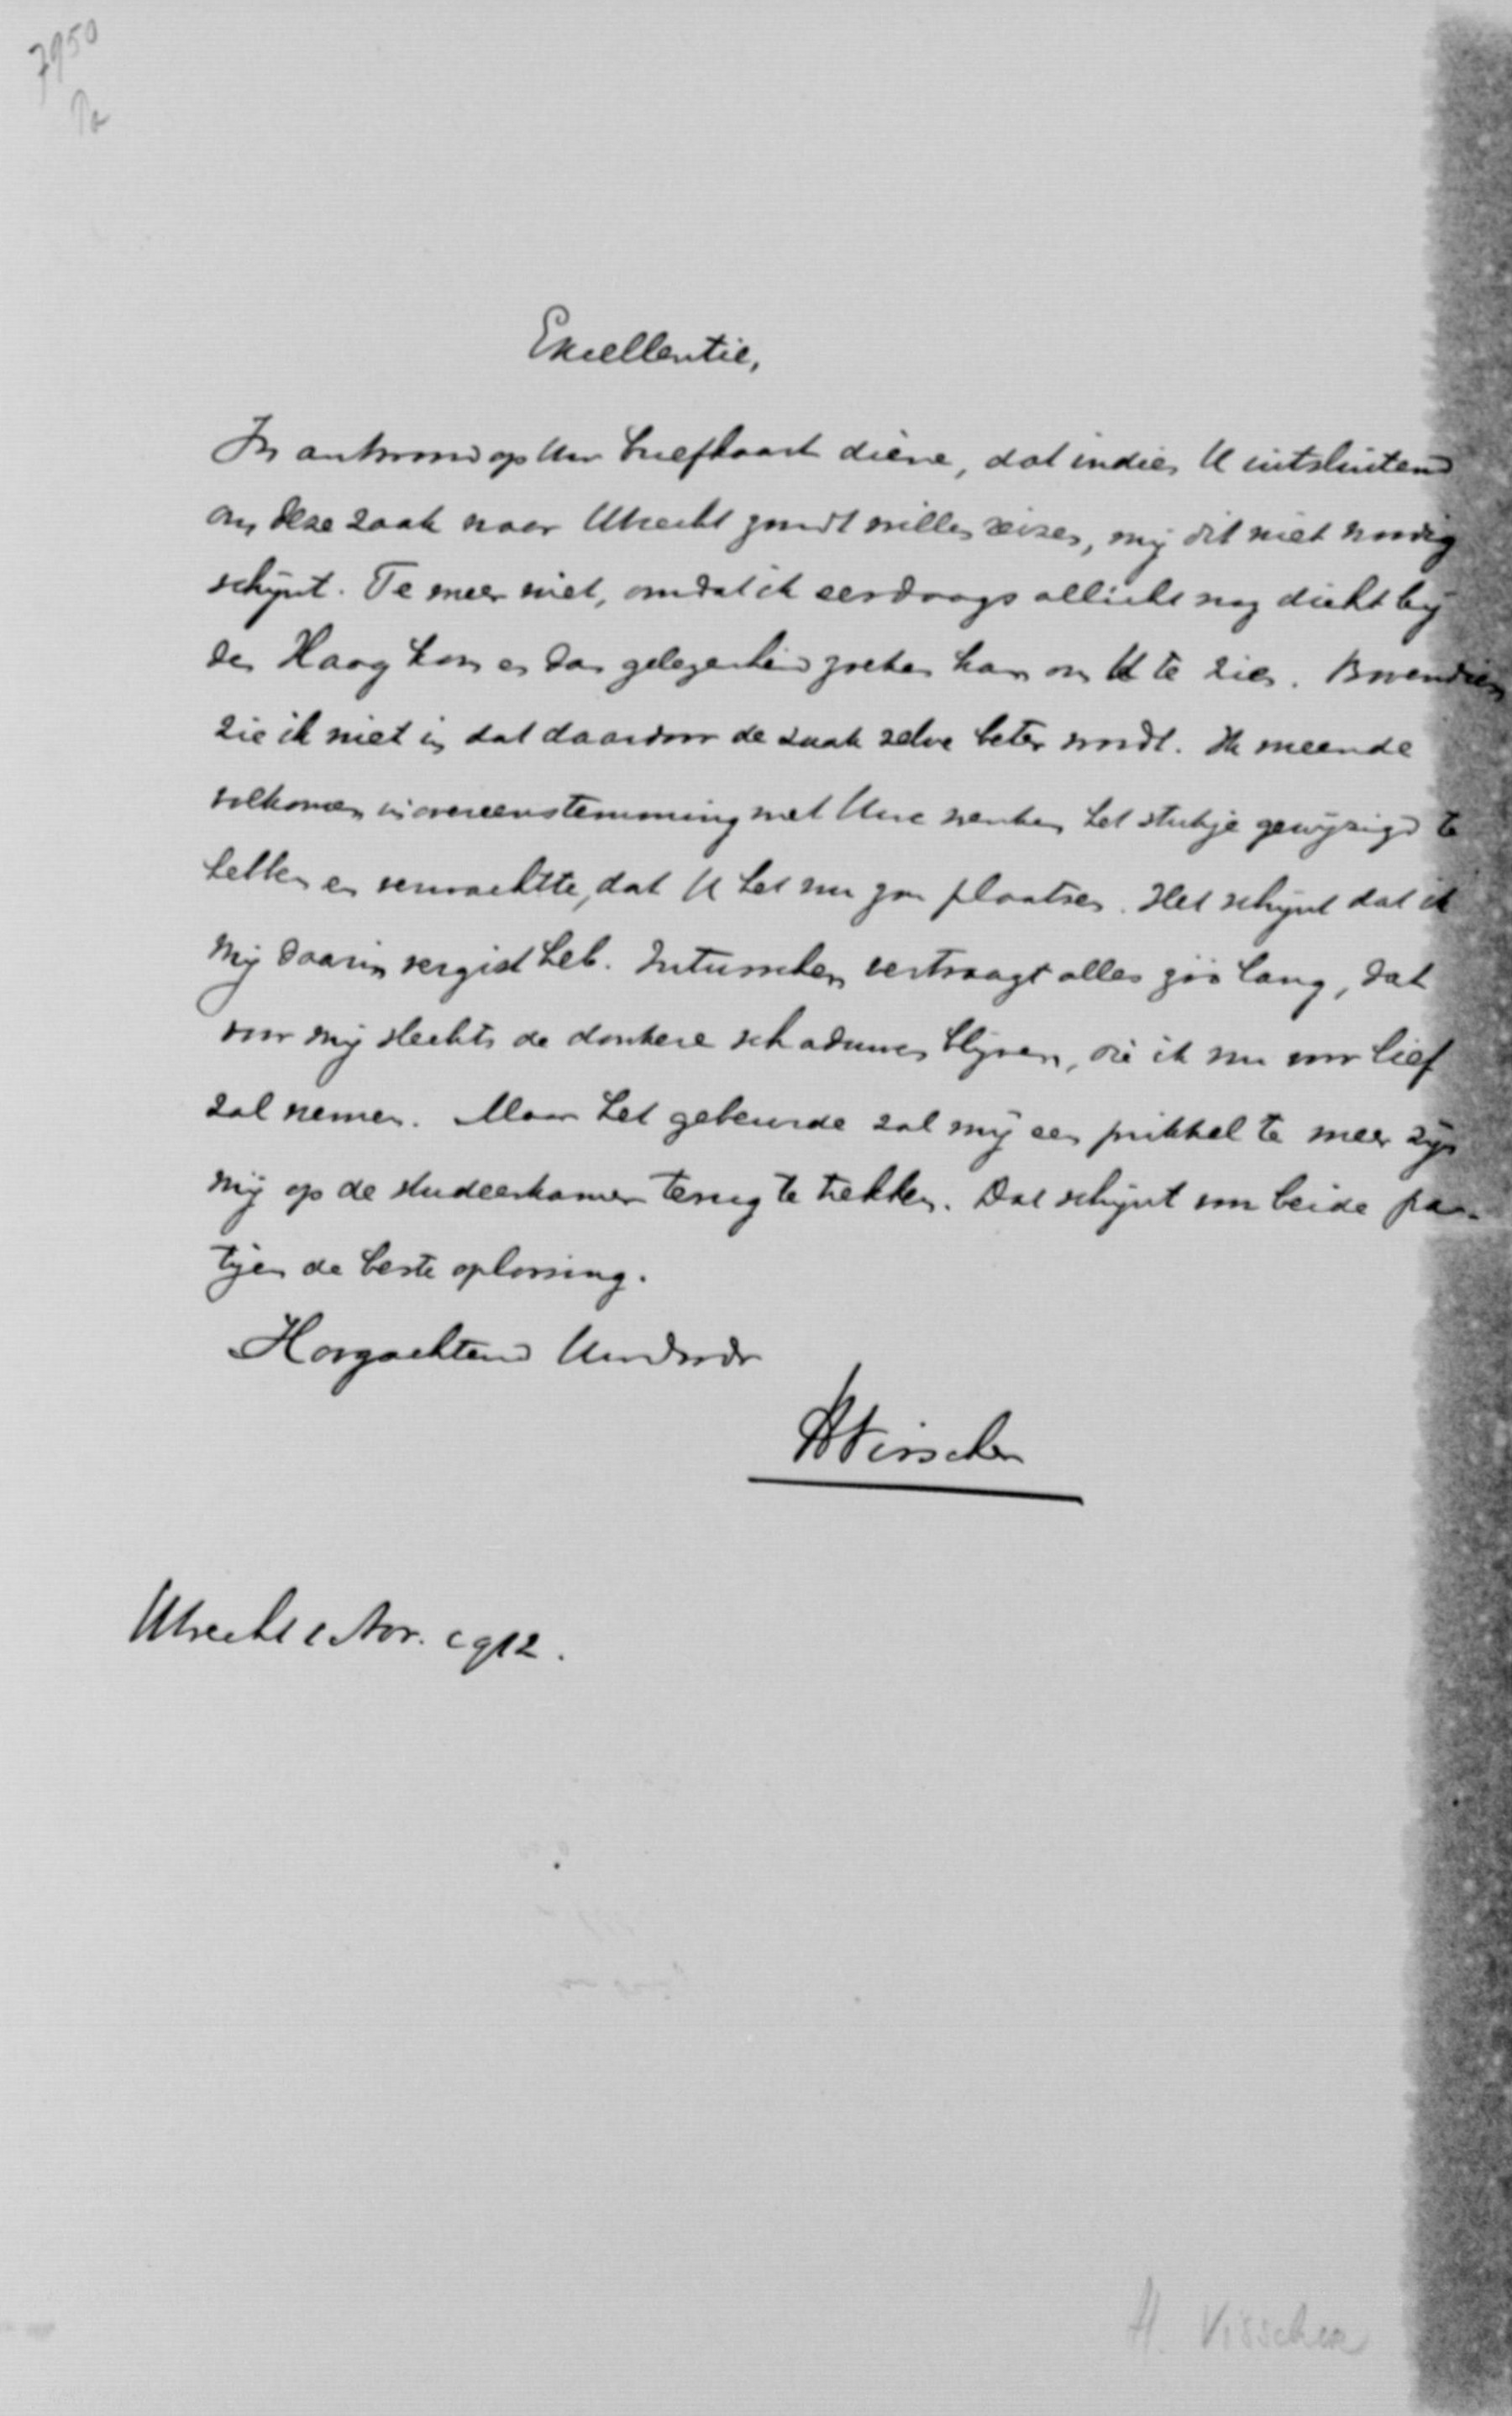 7950
Pa
Excellentie,
In antwoord op Uw briefkaart diene, dat indien U uitsluitend
om deze zaak naar Utrecht zoudt willen reizen, mij dit niet noodig
schijnt. Te meer niet, omdat ik eerdaags allicht nog dicht bij
den Haag kom en dan gelegenheid zoeken kan om U te zien. Bovendien
zie ik niet in dat daardoor de zaak zelve beter wordt. Ik meende
volkomen in overeenstemming met Uwe wenken het stukje gewijzigd te
hebben en verwachtte, dat U het nu zou plaatsen. Het schijnt dat ik
mij daarin vergist heb. Intusschen vertraagt alles zóó lang, dat
voor mij slechts de donkere schaduwen blijven, die ik nu voor lief
zal nemen. Maar het gebeurde zal mij een prikkel te meer zijn
mij op de studeerkamer terug te trekken. Dat schijnt voor beide par-
tijen de beste oplossing.
Hoogachtend Uw dw dr
HVisscher
Utrecht 1 Nov. 1912.
H. Visscher